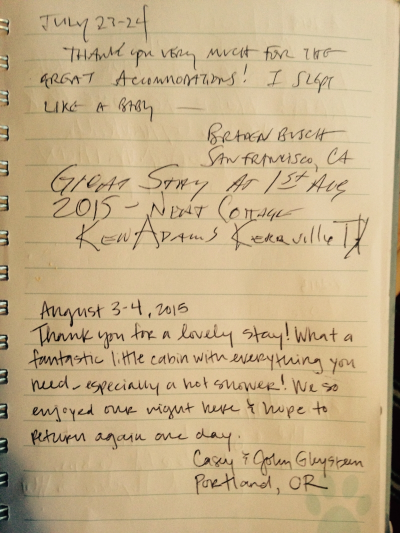 July 23-24
Thank you very much for the
great accommodations! I slept
like a baby —
Braden Busch
San Francisco, CA
Great Stay at 1st Aug
2015 - Neat Cottage
Ken Adams Kerrville TX
August 3-4, 2015
Thank you for a lovely stay! What a
fantastic little cabin with everything you
need - especially a hot shower! We so
enjoyed our night here & hope to
return again one day.
Casey & John
Portland, OR